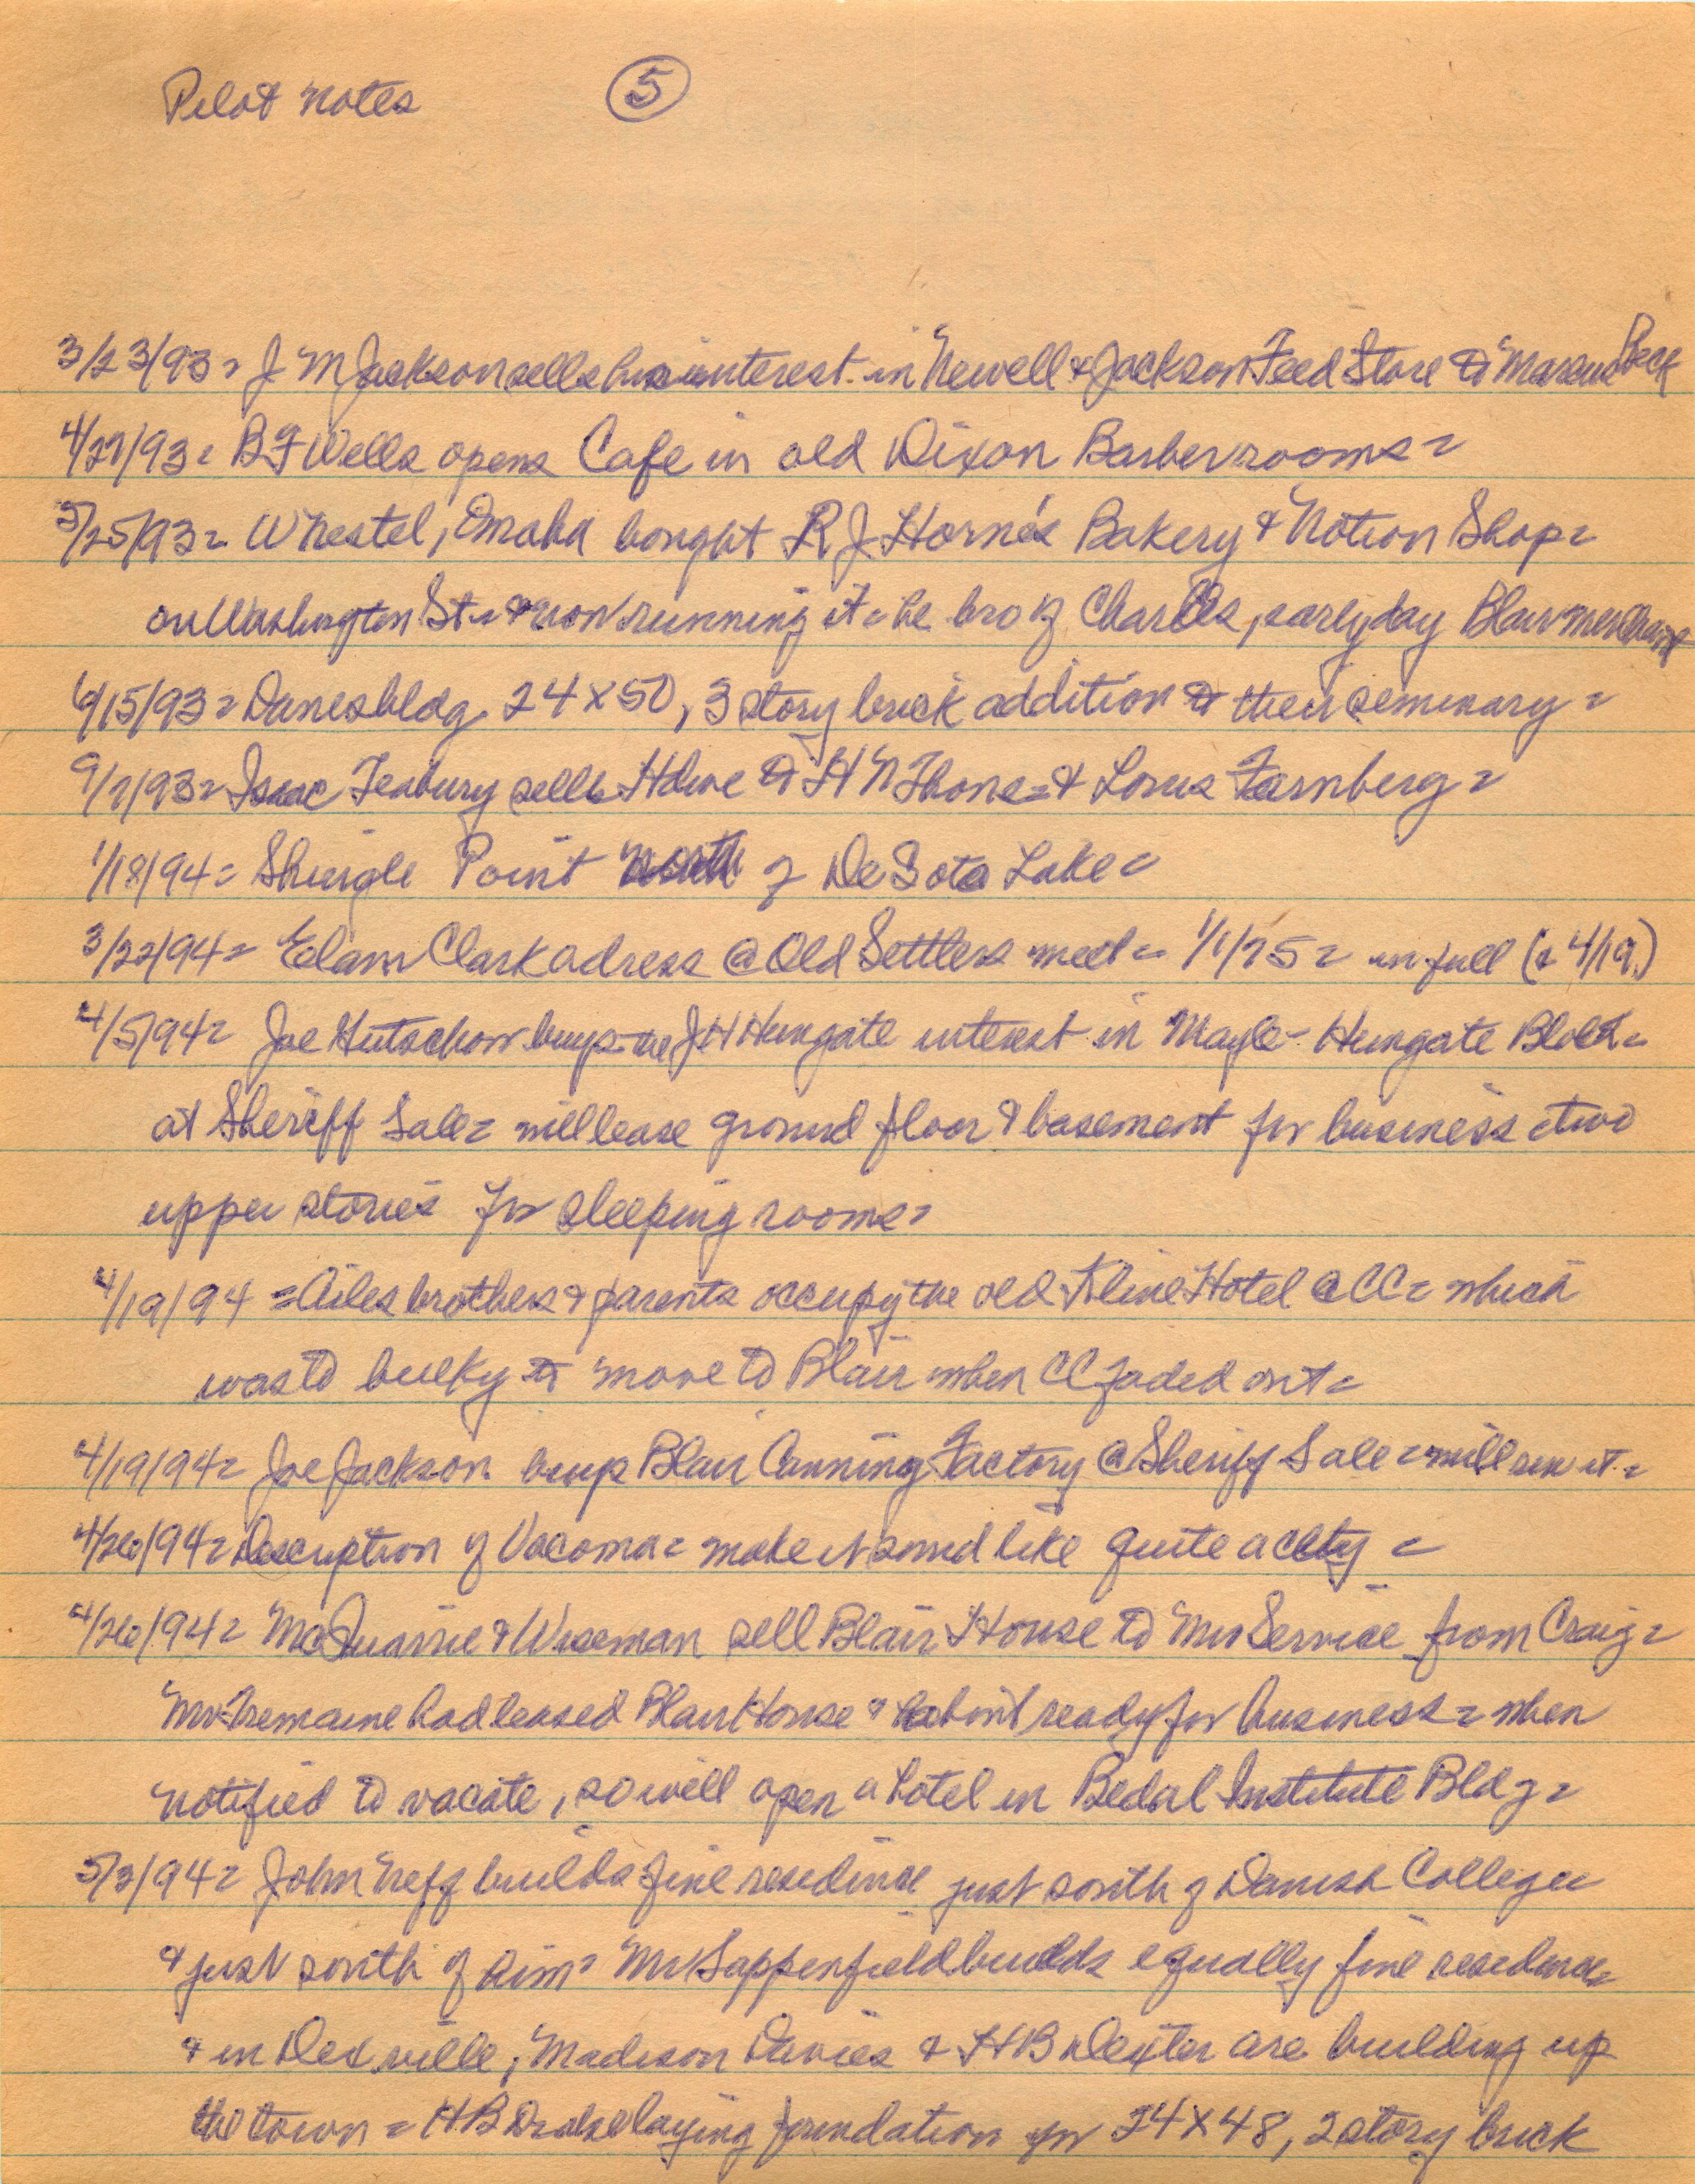 Pilot Notes (5)
3/23/93 = J M Jackson sells his interest in Newell & Jackson Feed Store to Marcus Beck
4/27/93 = B F Wells opens Cafe in old Dixon Barber rooms =
5/25/93 = W Nestel, Omaha bought R J Horne's Bakery & Notion Shop =
on Washington St = & now running it = he bro of Charles, early day Blair merchant
6/15/93 = Danes bldg 24 x 50, 3 story brick addition to their seminary =
9/7/93 = Isaac sells Hdwe to H N Thone = & Louis Farnberg =
1/18/94 = Shingle Point North of DeSota Lake =
3/22/94 = Elam Clark adress @ Old Settlers meet = 1/1/75 = in full (& 4/19)
4/5/94 = Joe Hutschow buys the J H Hungate interest in Mayle - Hungate Block =
at Sheriff Sale = will lease ground floor & basement for business & two
upper stories for sleeping rooms =
4/19/94 = Ailes brothers & parents occupy the old Kline Hotel @ CC = which
was to bulky to move to Blair when CC faded out =
4/19/94 = Joe Jackson buys Blair Canning Factory @ Sheriff Sale = will run it =
4/26/94 = Description of Vacoma = make it sound like quite a city =
4/26/94 = McQuarrie & Wiseman sell Blair House to Mr Service from Craig =
Mr Tremaine had leased Blair House & about ready for business = when
notified to vacate, so will open a hotel in Bedal Institute Bldg =
5/3/94 = John Neff builds fine residence just south of Danish College
& just south of him = Mr Sappenfield builds equally fine residence =
& in Dexville, Madison Davies & H B Dexter are building up
the town = H B Drake laying foundation for 24 X 48, 2 story brick